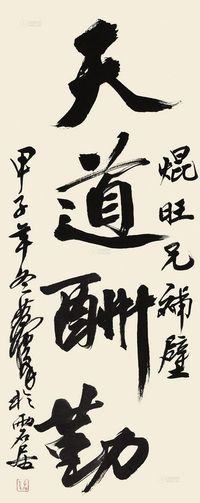 焜旺兄補壁
天道酬勤
甲子年冬
於雨石居